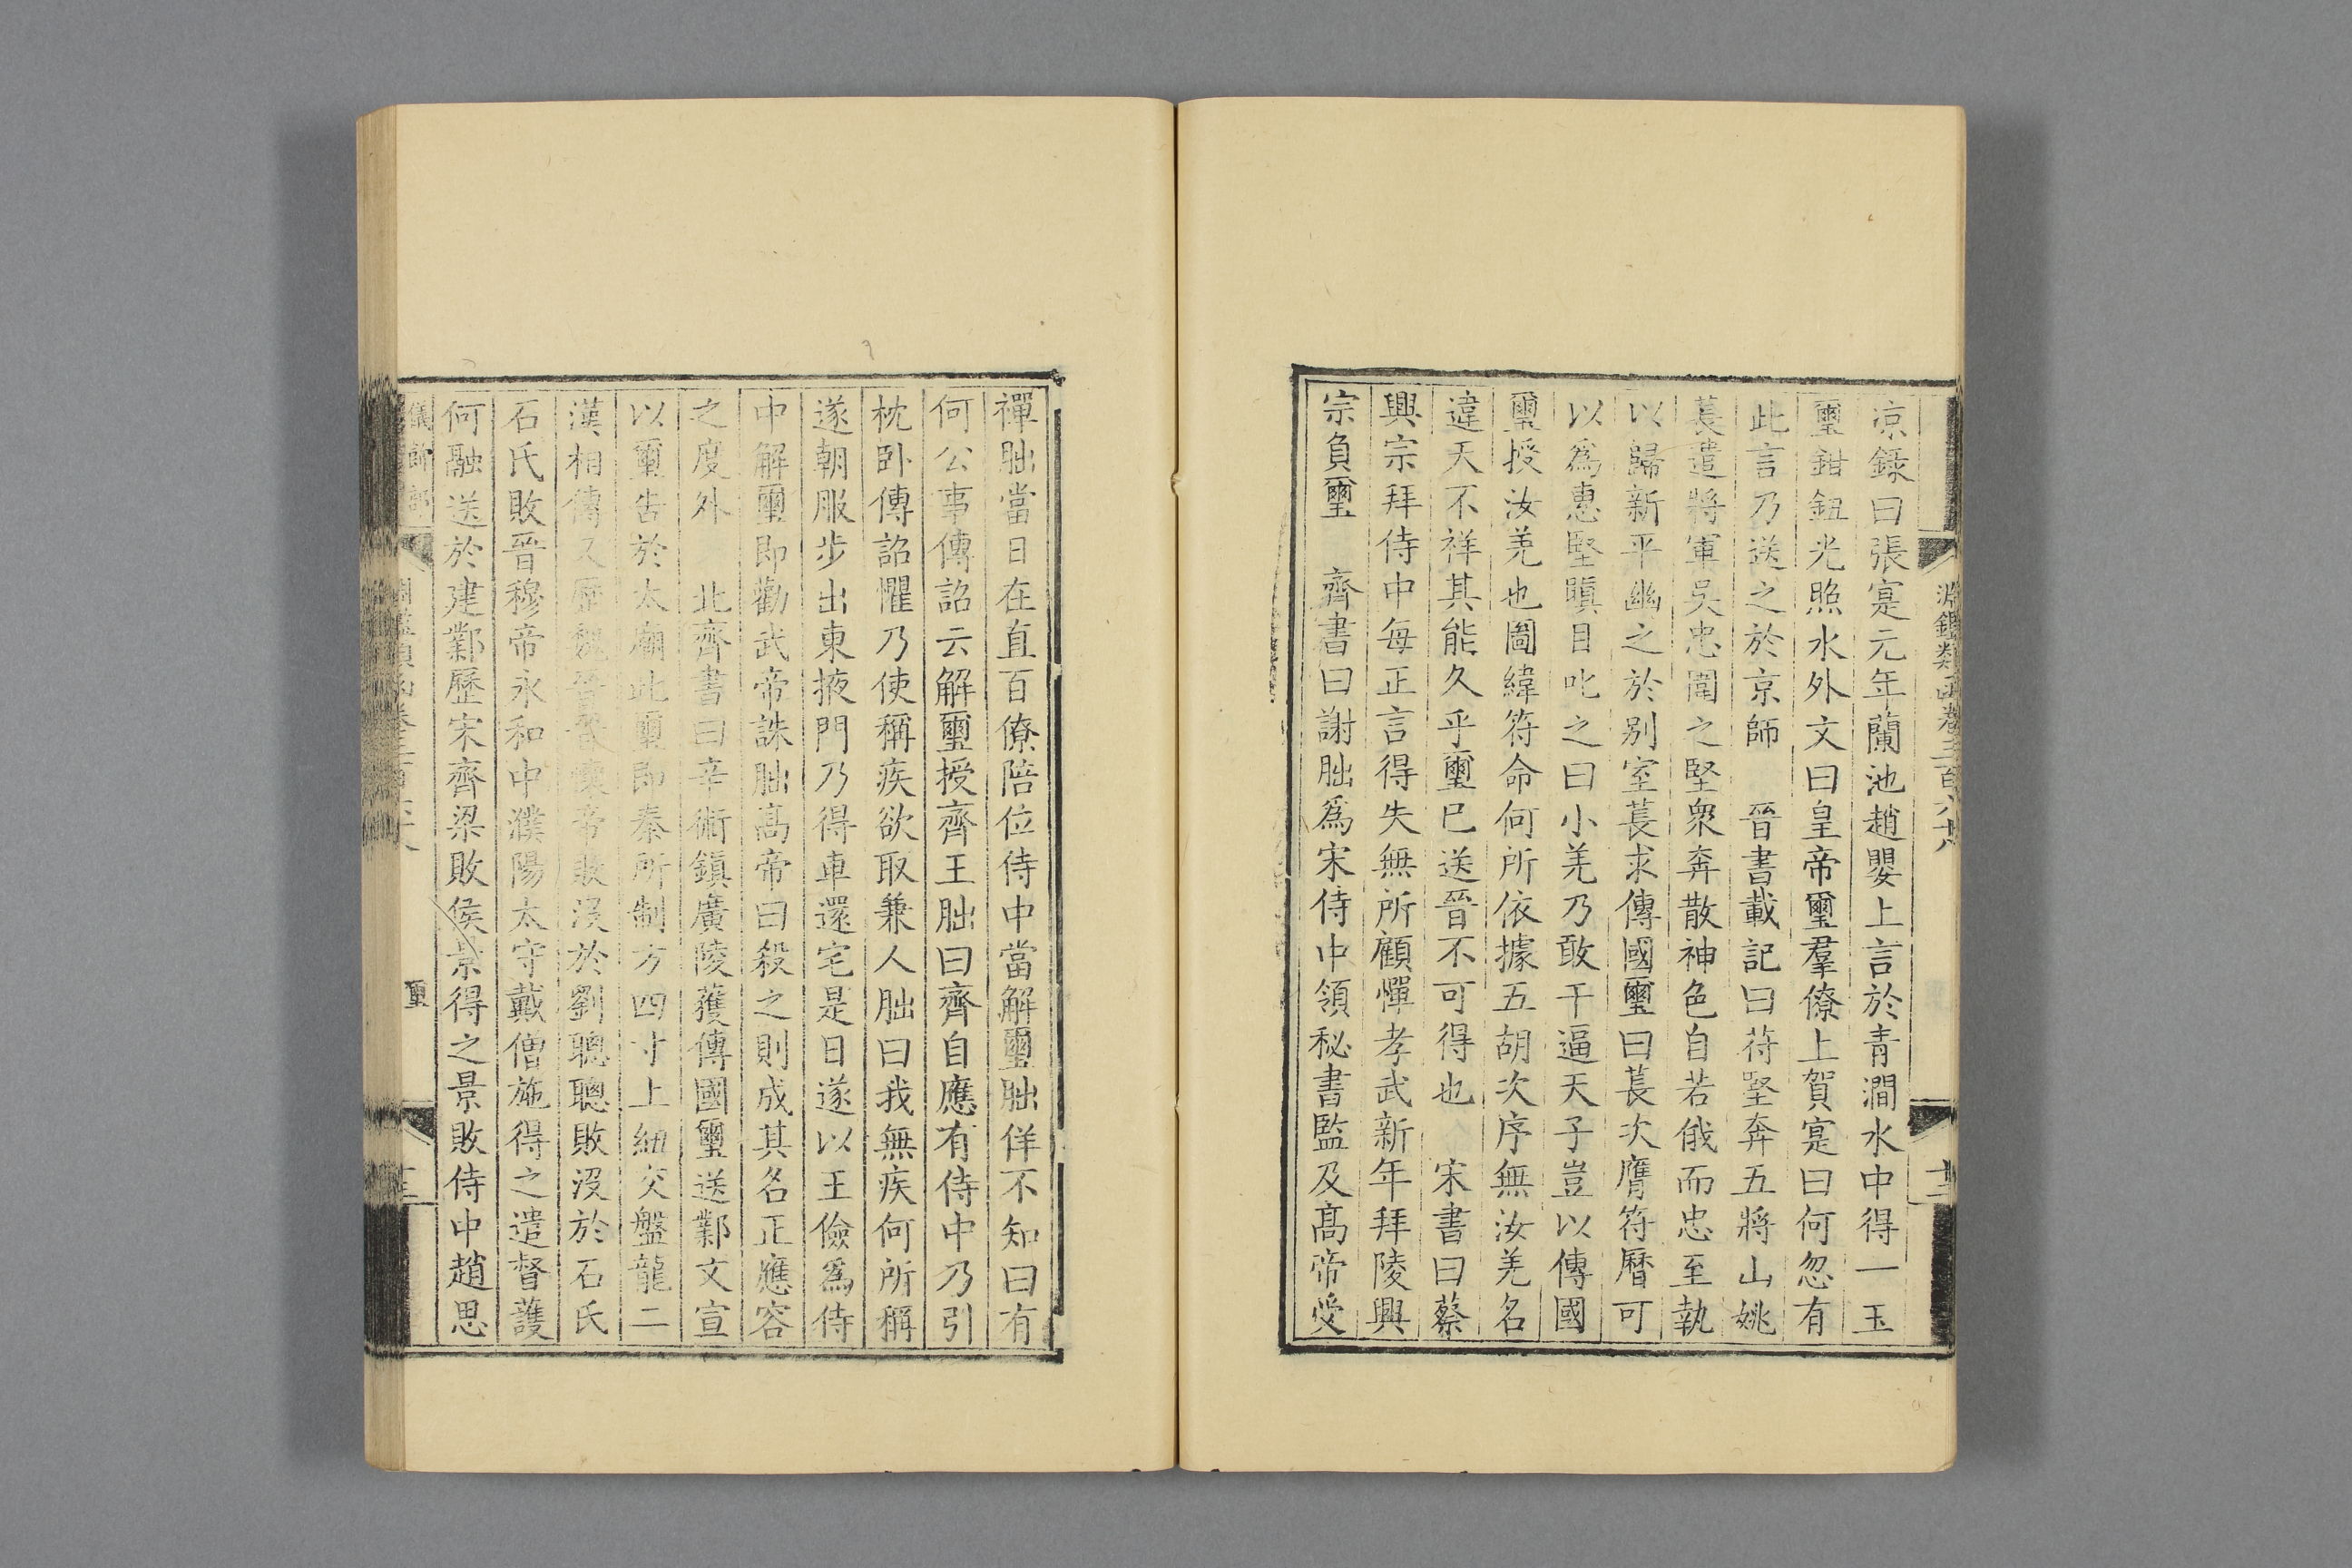 淵鑑類函卷三百六十八
凉錄曰張寔元年蘭池趙嬰上言於青澗水中得一玉
璽鉗鈕光照水外文曰皇帝璽羣僚上賀寔曰何忽有
此言乃送之於京師　晉書載記曰苻堅奔五將山姚
萇遣將軍吳忠圍之堅衆奔散神色自若俄而忠至執
以歸新平幽之於别室萇求傳國璽曰萇次膺符曆可
以爲惠堅瞋目叱之曰小羌乃敢干逼天子豈以傳國
璽授汝羌也圖緯符命何所依據五胡次序無汝羌名
違天不祥其能久乎璽已送晉不可得也　宋書曰蔡
興宗拜侍中每正言得失無所顧憚孝武新年拜陵興
宗負璽　齊書曰謝朏爲宋侍中領秘書監及髙帝受
禪朏當日在直百僚陪位侍中當解璽朏佯不知曰有
何公事傳詔云解璽授齊王朏曰齊自應有侍中乃引
枕卧傳詔懼乃使稱疾欲取兼人朏曰我無疾何所稱
遂朝服步出東掖門乃得車還宅是日遂以王儉爲侍
中解璽即勸武帝誅朏髙帝曰殺之則成其名正應容
之度外　北齊書曰辛術鎭廣陵獲傳國璽送鄴文宣
以璽告於太廟此璽即秦所制方四寸上紐交盤龍二
漢相傳又歷魏晉懷帝敗没於劉聰聰敗没於石氏
石氏敗晉穆帝永和中濮陽太守戴僧施得之遣督護
何融送於建鄴歷宋齊梁敗侯景得之景敗侍中趙思
儀飾部
璽